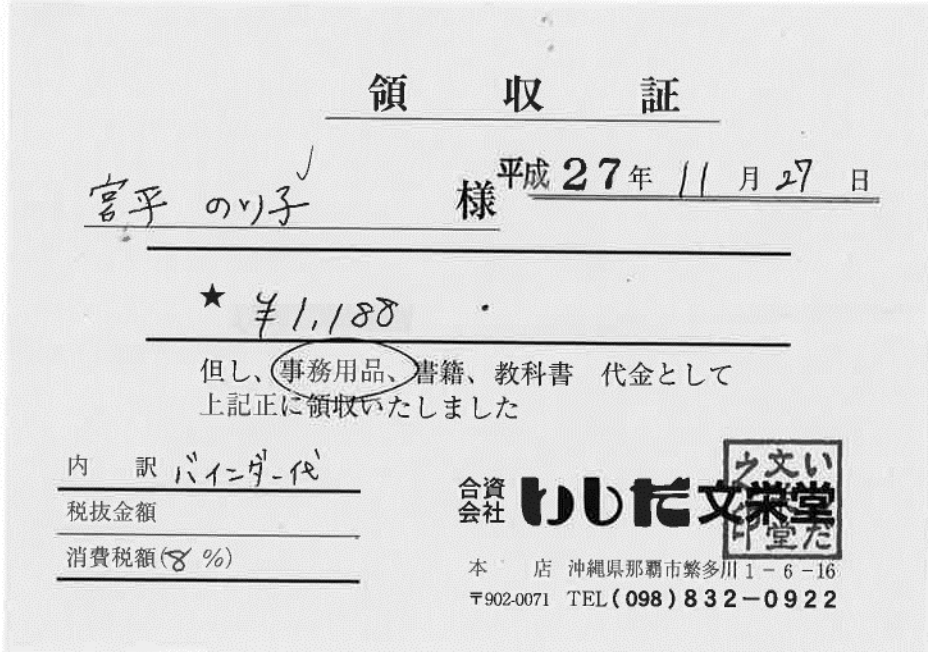 領収証
宮平 のり子 様
平成27年11月27日
★ ¥1,188
但し、事務用品、書籍、教科書 代金として
上記正に領収いたしました
内訳 バインダー代
税抜金額
消費税額(8%)
合資会社 いしだ文栄堂
本店 沖縄県那覇市繁多川1-6-16
〒902-0071 TEL(098)832-0922